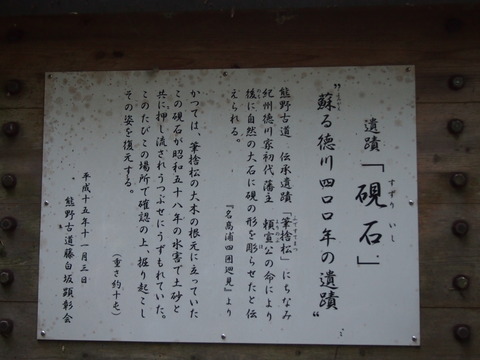 遺蹟「硯石」
すずり いし
"蘇る徳川四〇〇年の遺蹟"
よみがえ
熊野古道 伝承遺蹟「筆捨松」にちなみ
ふですてまつ
紀州徳川家初代藩主 頼宣公の命により
後に自然の大石に硯の形を彫らせたと伝
えられる。
『名高浦四囲廻見』より
かつては、筆捨松の大木の根元に立っていた
この硯石が昭和五十八年の水害で土砂と
共に押し流されうつぶせにうずもれていた。
このたびこの場所で確認の上、掘り起こし
その姿を復元する。
(重さ約十屯)
平成十五年十一月三日
熊野古道藤白坂顕彰会